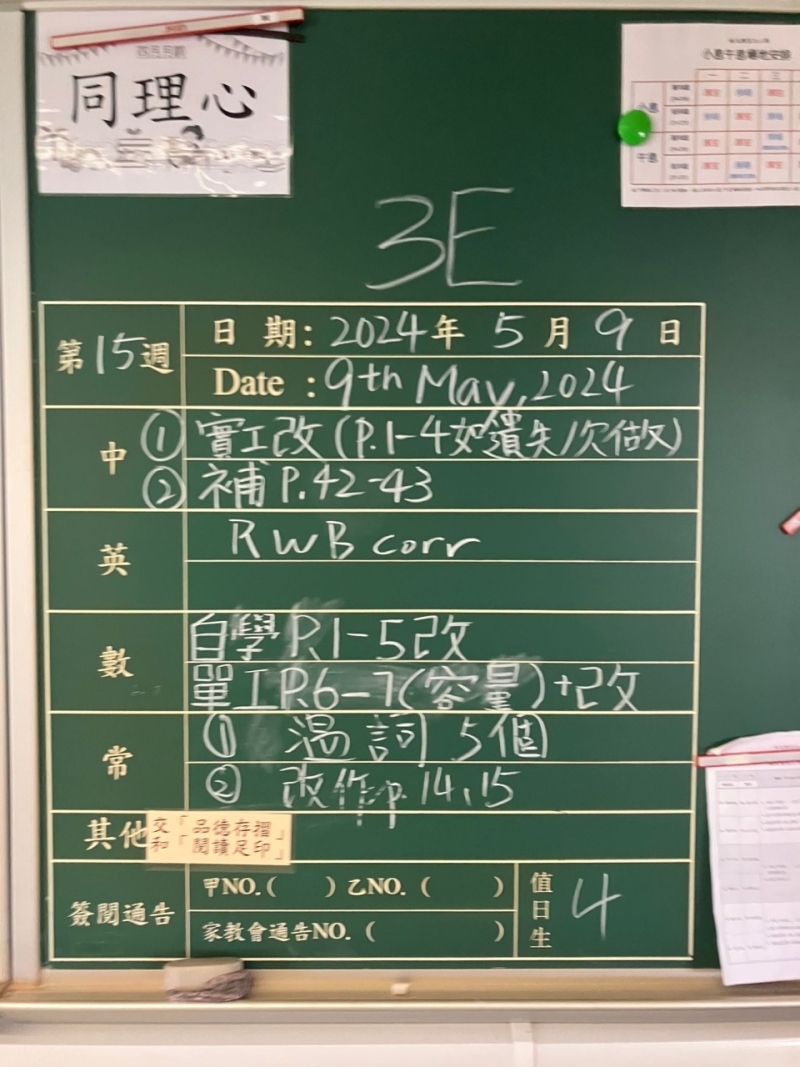 四月月訓
同理心
小息午息場地安排
一 二 三
小息
午息
3E
第15週
日 期: 2024年 5 月 9 日
Date : 9th May, 2024
中
① 實工改 (P.1-4如遺失/欠做)
② 補 P.42-43
英
RWB corr
數
自學 P.1-5改
單工P.6-7(容量)+改
常
① 溫詞 5個
② 改作 p. 14, 15
其他
交「品德存摺」
和「閱讀足印」
簽閱通告
甲NO.( ) 乙NO. ( )
家教會通告NO. ( )
值日生
4